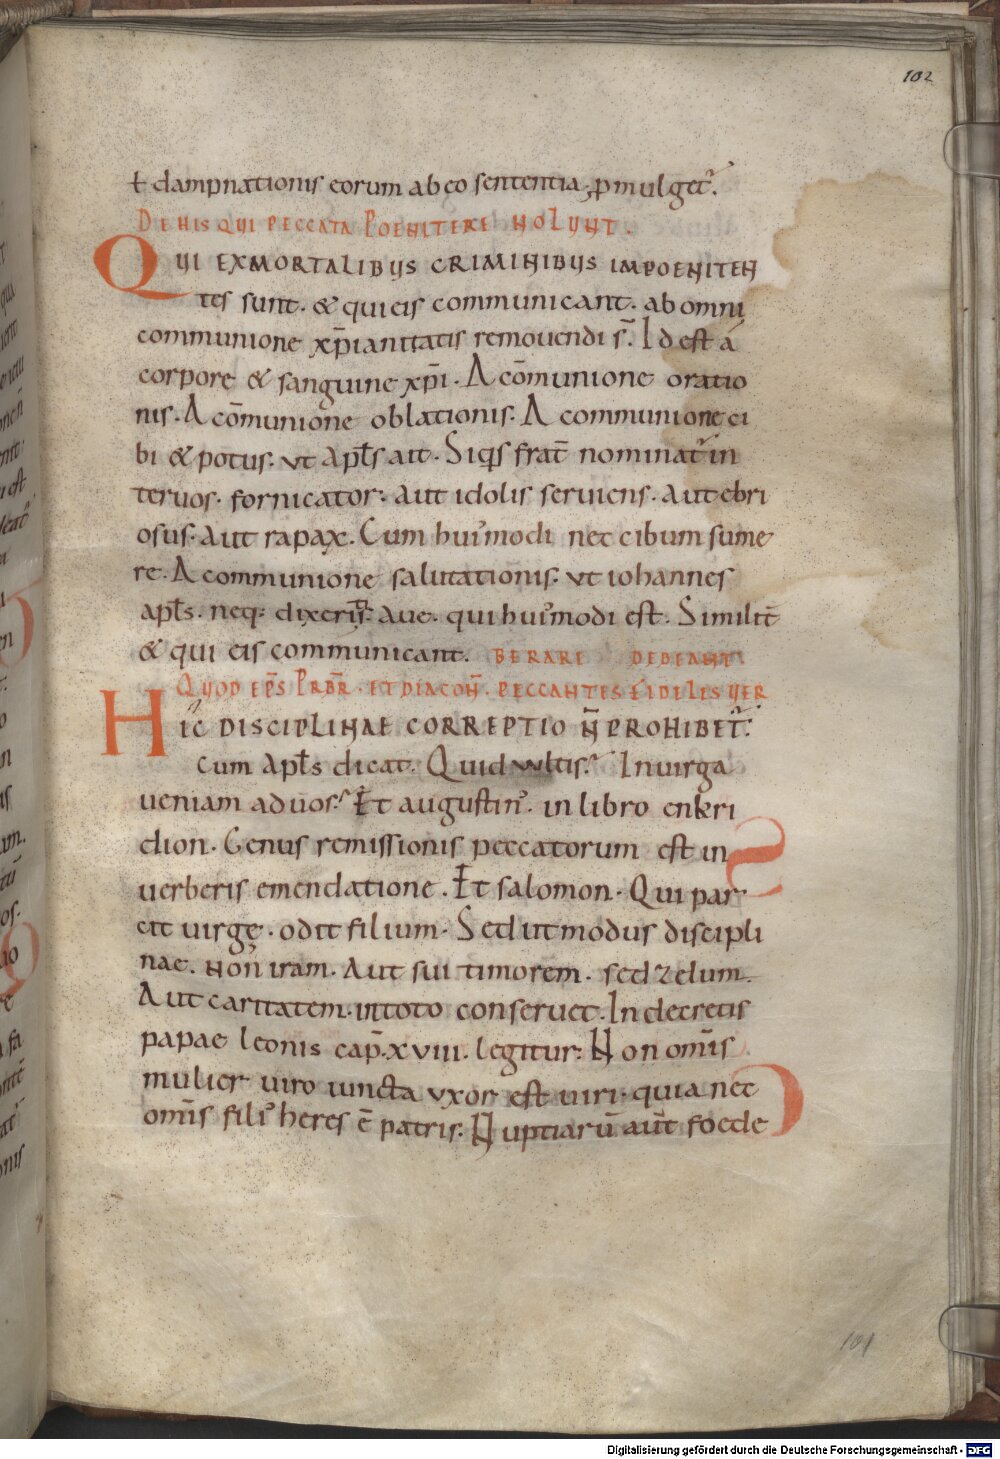 102
ł dampnationis eorum ab eo sententia ꝓmulget᷑.
DE HIS QUI PECCATA POENITERE NOLUNT.
QUI EX MORTALIBUS CRIMINIBUS IMPOENITEN
tes sunt. & qui eis communicant. ab omni
communione xp̄ianitatis remouendi s̄. Id est á
corpore & sanguine xp̄i. A cōmunione oratio
nis. A cōmunione oblationis. A communione ci
bi & potus. ut apƚs ait. Siq̄s frat̄ nominat᷑ in
ter uos. fornicator. aut idolis seruiens. aut ebri
osus. aut rapax. Cum hui᾽modi nec cibum sume
re. A communione salutationis. ut iohannes
apƚs. neq; dixeris aue. qui hui᾽modi est. Similit̄
& qui eis communicant. BERARE DEBEANT.
QUOD EP̄S PRB̄R. ET DIACON̄. PECCANTES FIDELES UER
HIC DISCIPLINAE CORREPTIO N̄ PROHIBET᷑.
Cum apƚs dicat. Quid uultis? In uirga
ueniam ad uos? Et augustin᾽. in libro enkiri
dion. Genus remissionis peccatorum est in
uerberis emendatione. Et salomon. Qui par
cit uirgę. odit filium. Sed ut modus discipli
nae. non iram. Aut sui timorem. sed zelum.
Aut caritatem. in toto conseruet. In decretis
papae leonis cap̄. xviii. legitur. Non om̄is
mulier uiro iuncta uxor est uiri. quia nec
om̄is fili᾽ heres ē patris. Nuptiarū aūt foede
101
Digitalisierung gefördert durch die Deutsche Forschungsgemeinschaft - DFG